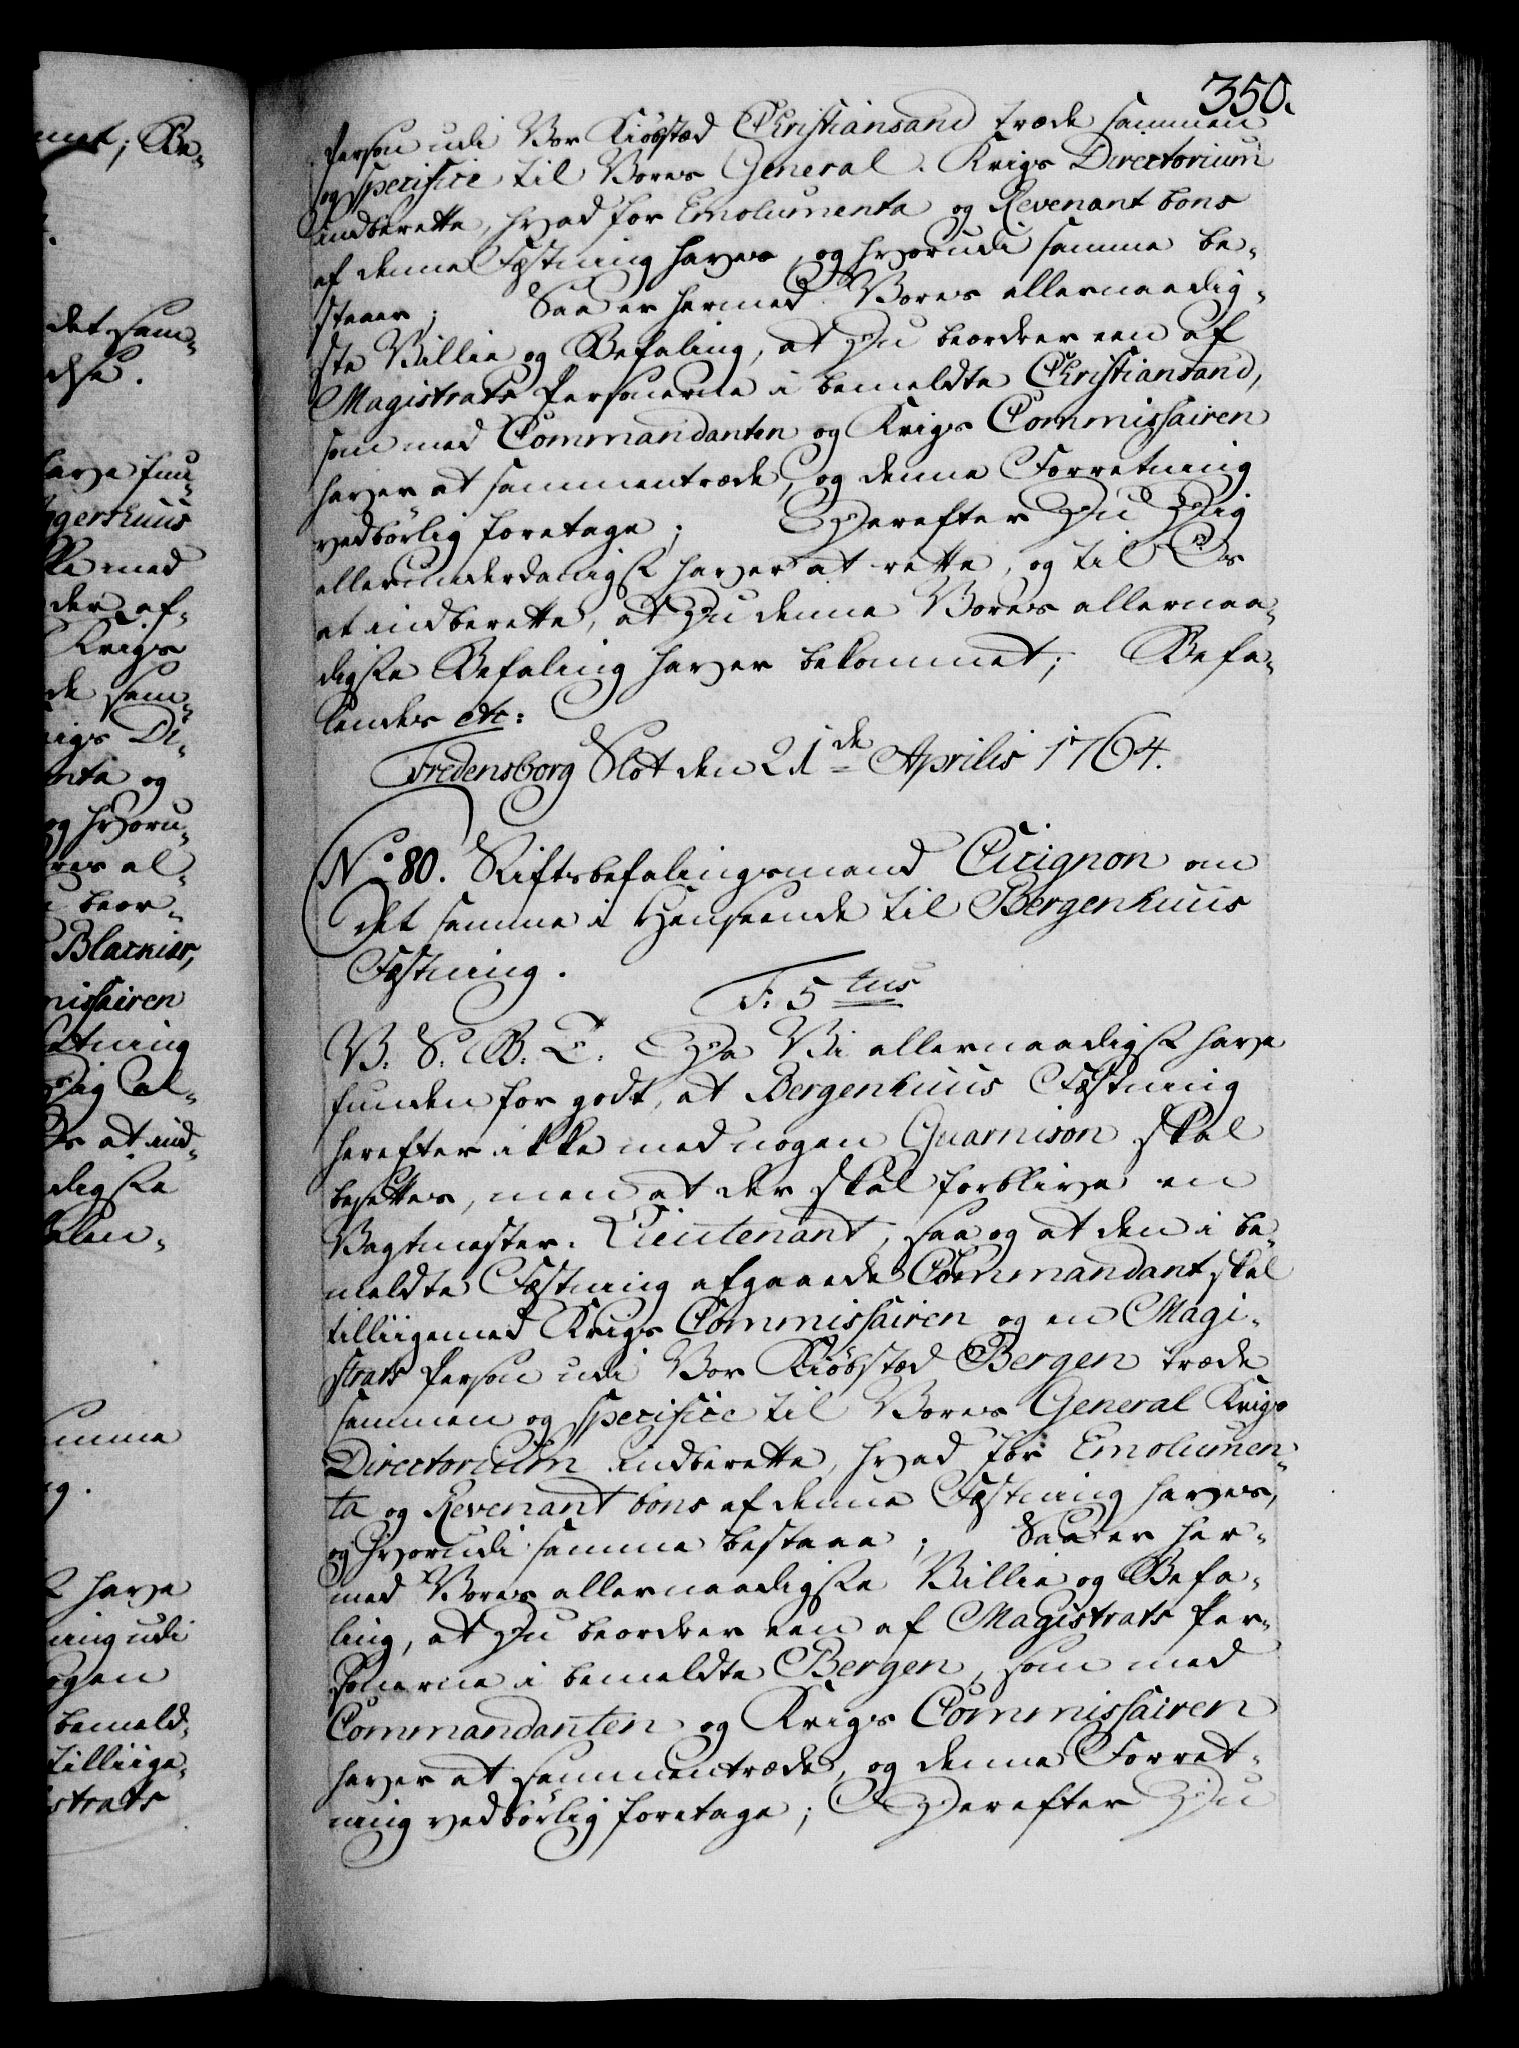 350.
Person udi Vor Kiöbstæd Christiansand træde sammen
og specifice til Vores General-Krigs Directorium
indberette, hvad for Emolumenta og Revenant bons
af denne Fæstning haves, og hvorudi samme be-
staaer; Saa er hermed Vores allernaadig-
ste Villie og Befaling, at Du beordrer een af
Magistrats Personerne i bemeldte Christiansand,
som med Commandanten og Krigs Commissairen
haver at sammentræde, og denne Forretning
vedbörlig foretage; Derefter Du Dig
allerunderdanigst haver at rette, og til Os
at indberette, at Du denne Vores allernaa-
digste Befaling haver bekommet; Befa-
lendes etc:
Fredensborg Slot den 21de Aprilis 1764.
No 80. Stiftsbefalingsmand Cicignon om
det samme i Henseende til Bergenhuus
Fæstning.
F: 5tus
V. S. G. T. Da Vi allernaadigst have
funden for godt, at Bergenhuus Fæstning
herefter ikke med nogen Guarnison skal
besettes, men at der skal forblive en
Vagtmester-Lieutenant, saa og at den i be-
meldte Fæstning afgaaede Commandant skal
tilliigemed Krigs Commissairen og en Magi-
strats Person udi Vor Kiöbstæd Bergen træde
sammen og specifice til Vores General Krigs
Directorium indberette, hvad for Emolumen-
ta og Revenant bons af denne Fæstning haves,
og hvorudi samme bestaae; Saa er her-
med Vores allernaadigste Villie og Befa-
ling, at Du beordrer een af Magistrats Per-
sonerne i bemeldte Bergen, som med
Commandanten og Krigs Commissairen
haver at sammentræde, og denne Forret-
ning vedbörlig foretage; Derefter Du